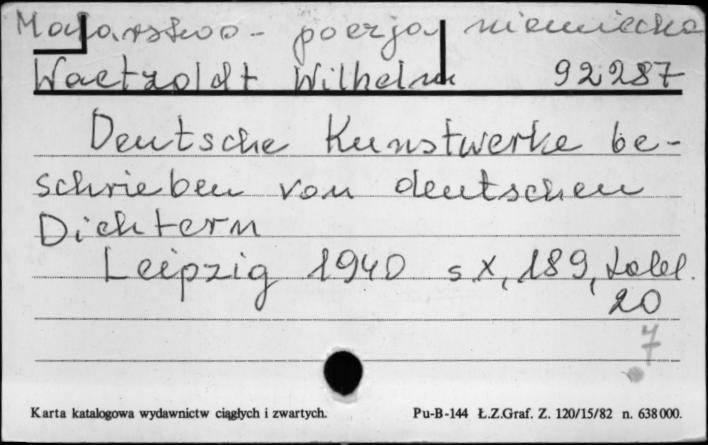 Malarstwo - poezja niemiecka
Waetzoldt Wilhelm 92287
Deutsche Kunstwerke be-
schrieben von deutschen
Dichtern
Leipzig 1940 s X, 189, tabl.
20
7
Karta katalogowa wydawnictw ciągłych i zwartych. Pu-B-144 Ł.Z.Graf. Z. 120/15/82 n. 638000.